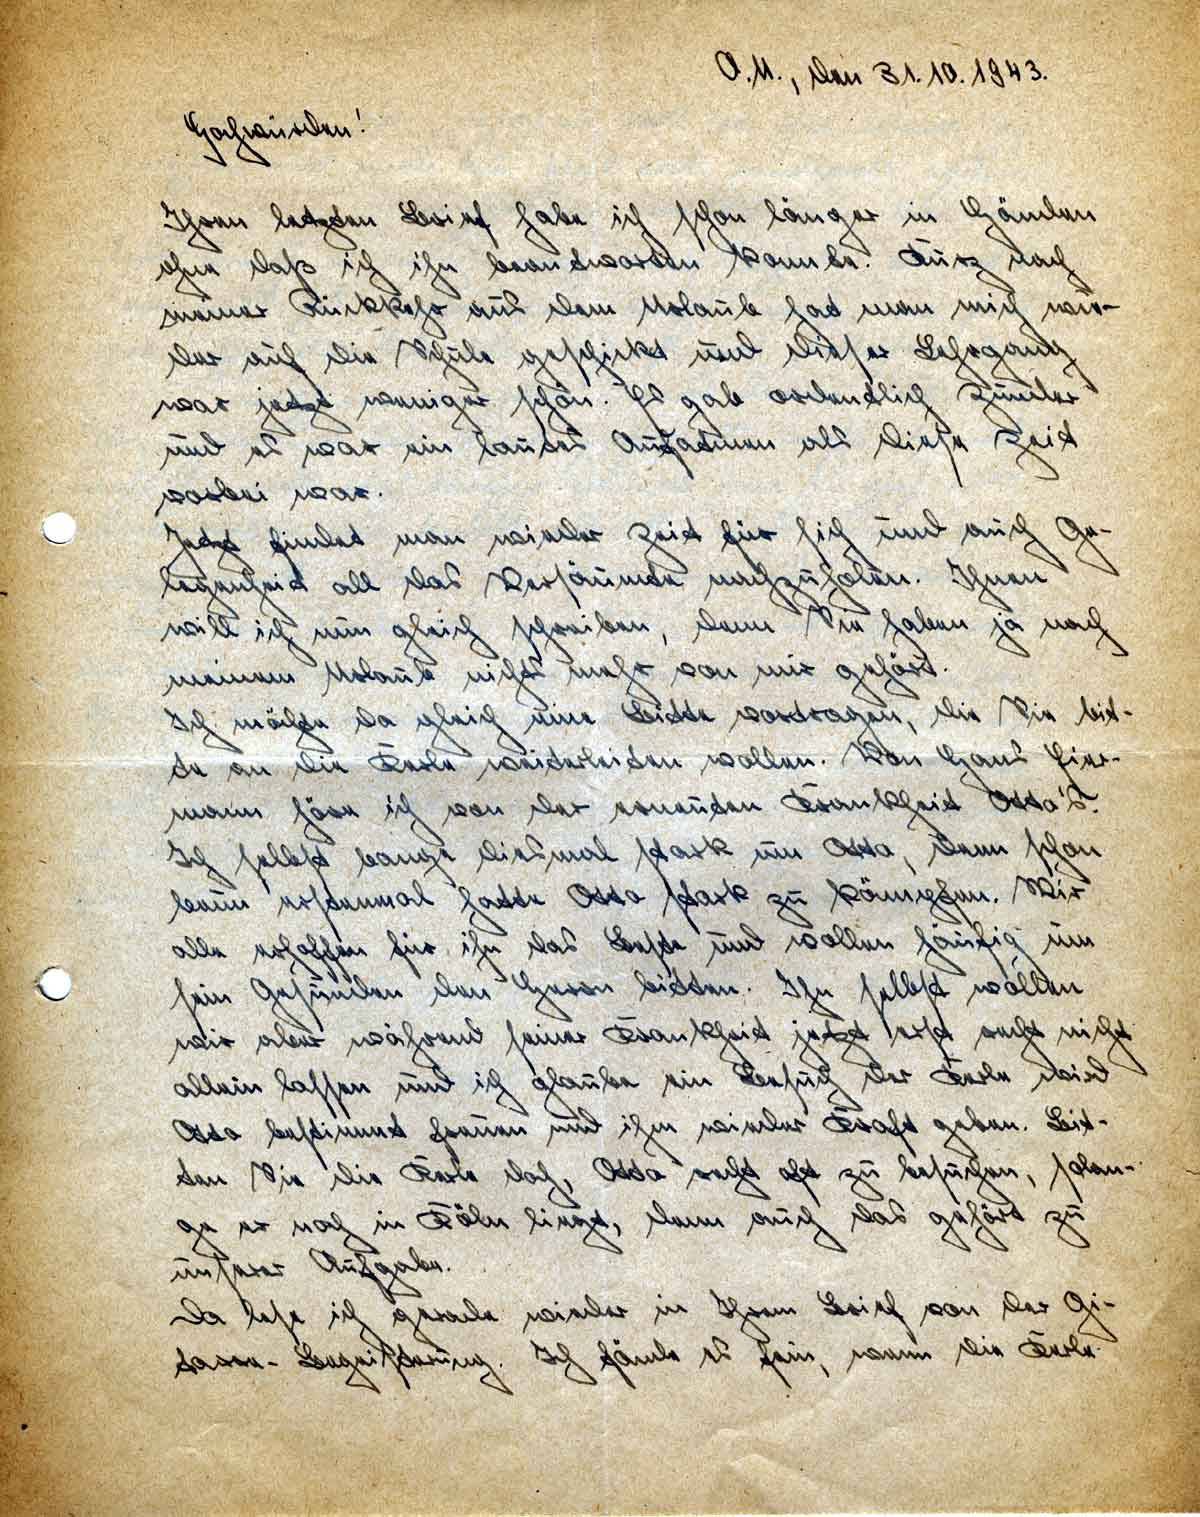 O.U., den 31.10.1943.
Hochwürden!
Ihren letzten Brief habe ich schon länger in Händen
ohne daß ich ihn beantworten konnte. Kurz nach
meiner Rückkehr aus dem Urlaub hat man mich wie-
der auf die Schule geschickt und dieser Lehrgang
war jetzt weniger schön. Es gab ordentlich Zunder
und es war ein lautes Aufatmen als diese Zeit
vorbei war.
Jetzt findet man wieder Zeit für sich und auch Ge-
legenheit all das Versäumte nachzuholen. Ihnen
will ich nun gleich schreiben, denn Sie haben ja nach
meinem Urlaub nichts mehr von mir gehört.
Ich möchte da gleich eine Bitte vortragen, die Sie bit-
te an die Kerle weiterleiten wollen. Von Hans Eier-
mann höre ich von der erneuten Krankheit Otto's.
Ich selbst bange diesmal stark um Otto, denn schon
beim erstenmal hatte Otto stark zu kämpfen. Wir
alle erhoffen für ihn das Beste und wollen häufig um
sein Gesunden den Herrn bitten. Ihn selbst wollen
wir aber während seiner Krankheit jetzt erst recht nicht
allein lassen und ich glaube ein Besuch der Kerle wird
Otto bestimmt freuen und ihm wieder Kraft geben. Bit-
ten Sie die Kerle doch, Otto recht oft zu besuchen, solan-
ge er noch in Köln liegt, denn auch das gehört zu
unserer Aufgabe.
Da lese ich gerade wieder in Ihrem Brief von der Gi-
tarre-Begeisterung. Ich fände es fein, wenn die Kerle